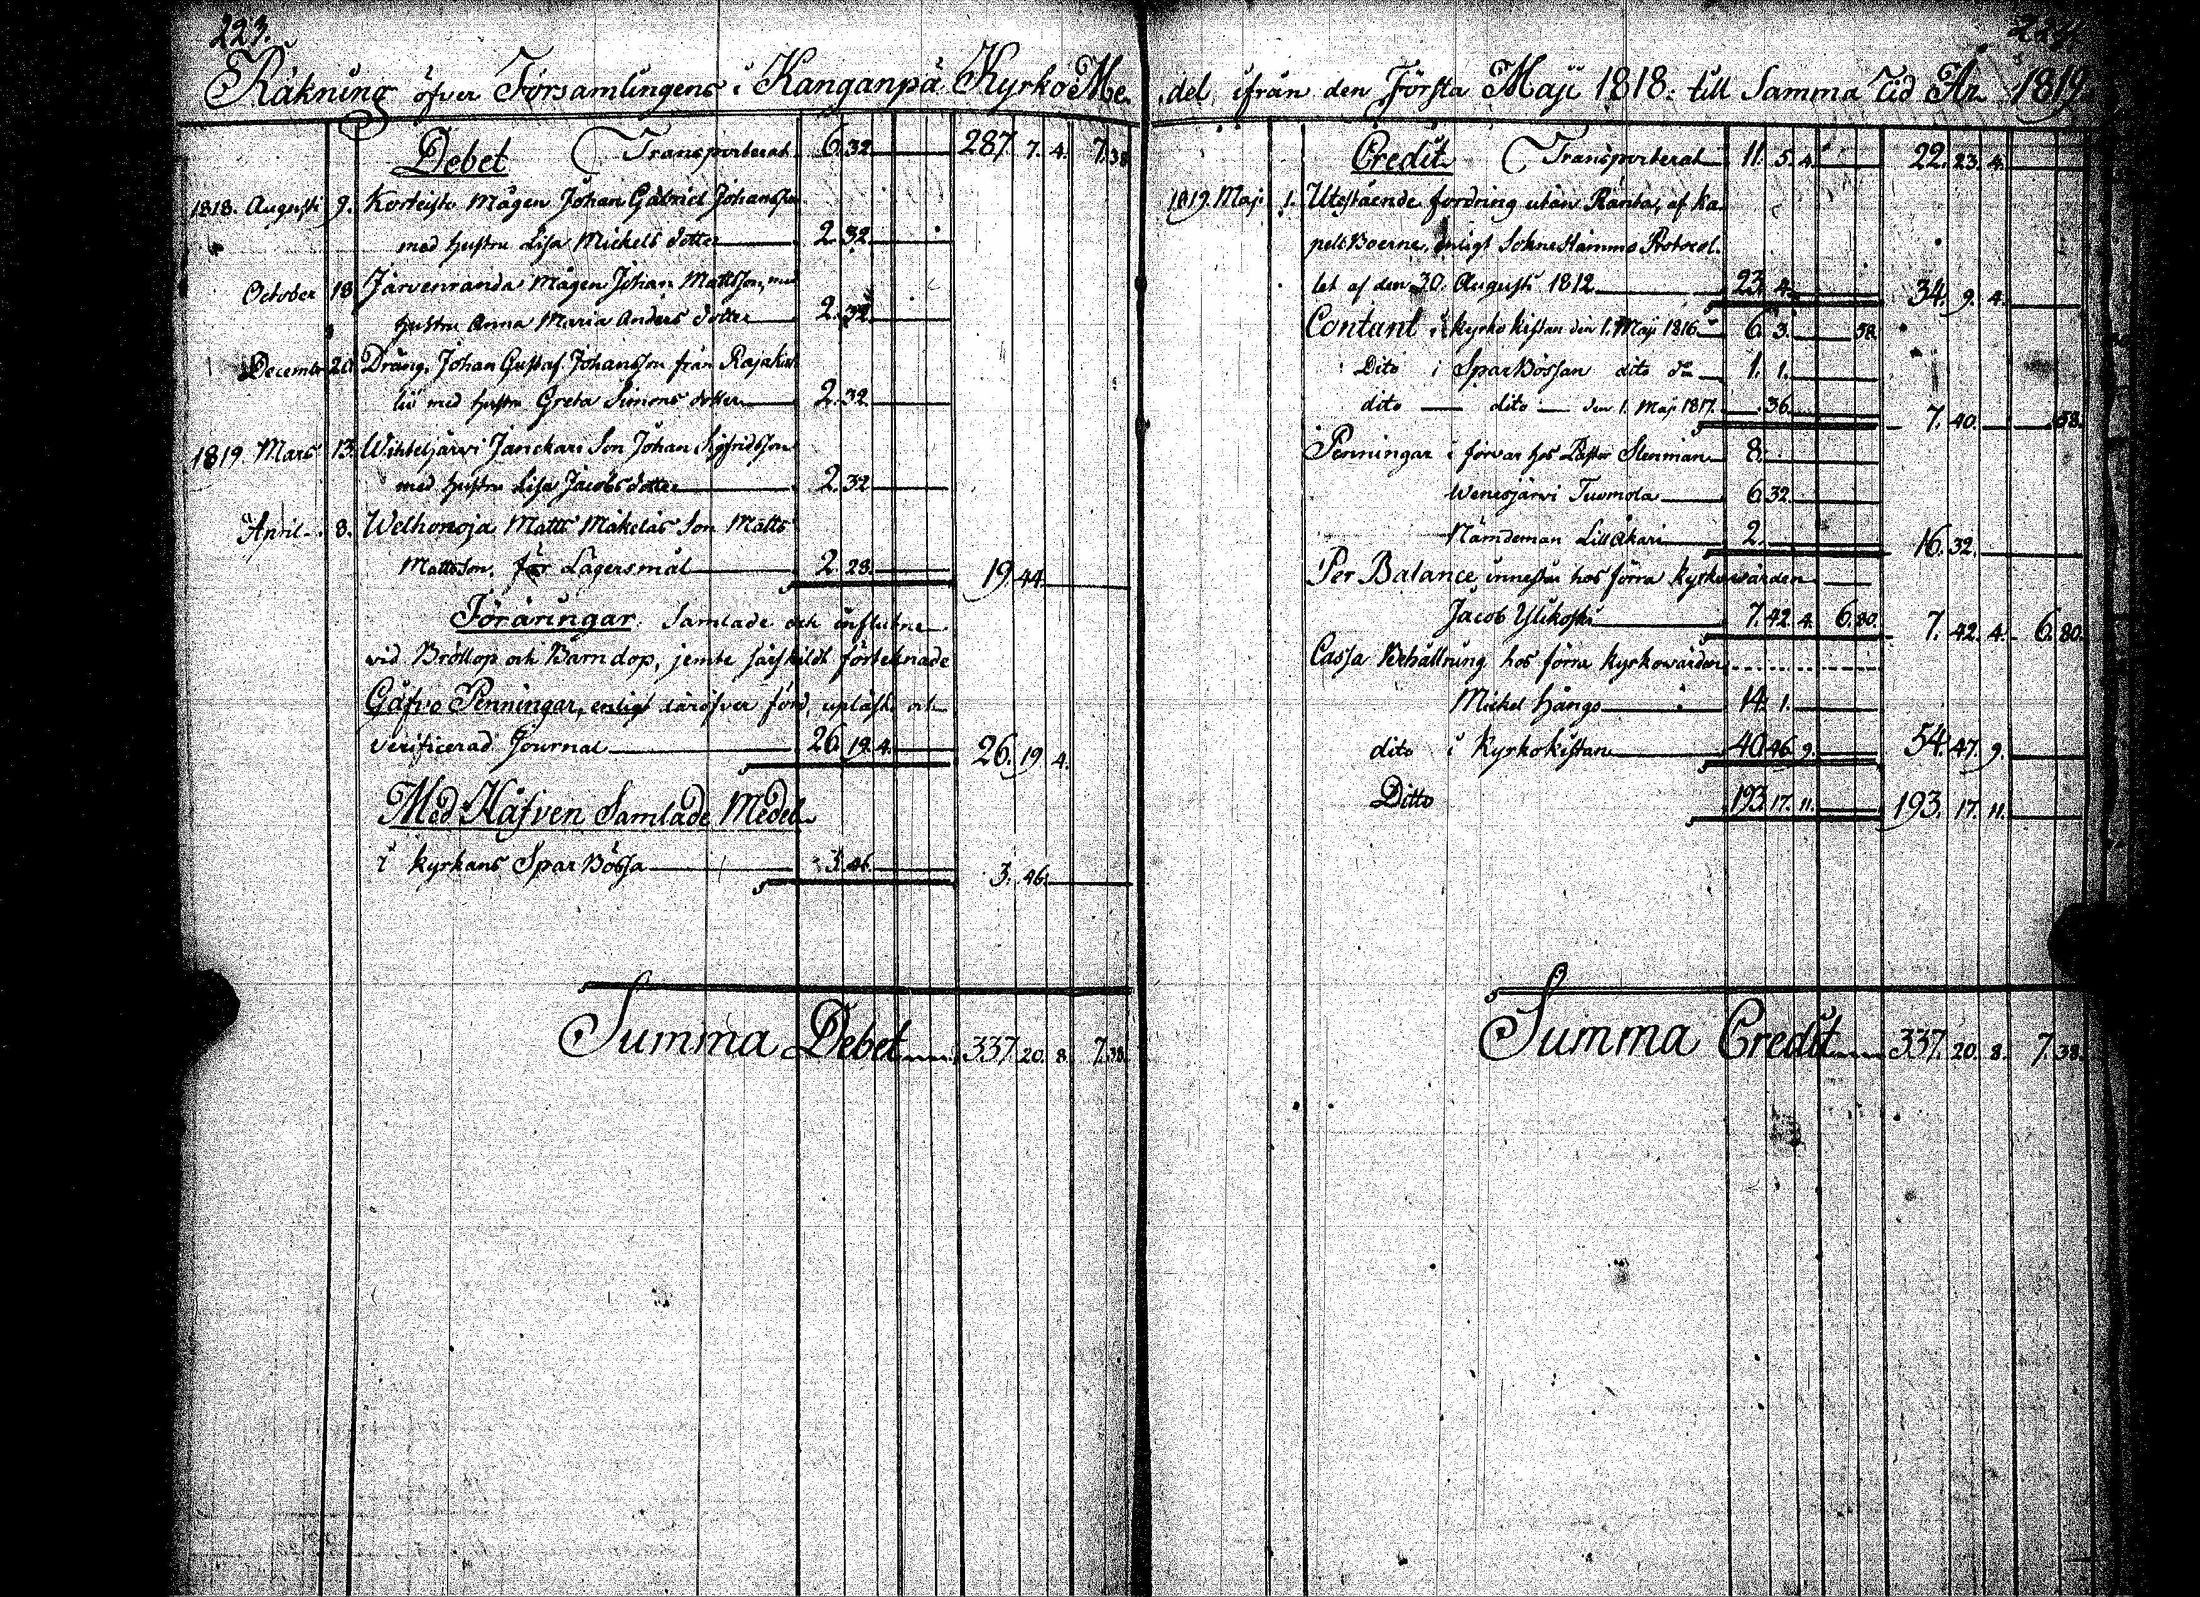 223.
Räkning öfver Församlingens i Kanganpä Kyrko Me-
Debet Transporterat 6. 32. 287. 7. 4. 7. 38
1818. Augusti 9. Korteisto Mågen Johan Gabriel Johansson
med hustru Lisa Mickels dotter 2. 32.
October 18 Järvenranda Mågen Johan Mattsson, med
hustru Anna Maria Anders dotter 2. 32.
December 20 Dräng. Johan Gustaf Johansson från
med hustru Greta Simons dotter 2. 32.
1819. Mars 13. Wihteljärvi Janckari Son Johan Sigfridsson
med hustru Lisa Jacobs dotter 2. 32
April 8. Welhonoja Matts Mäkeläs Son Matts
Mattsson, för Lägersmål 2. 28. 19. 44.
Föräringar. Samlade och influtne
vid Bröllop och Barndop, jemte särskildt förteknade
Gåfvo Penningar, enligt däröfver förd, upläst och
verificerad Journal 26. 19. 4. 26. 19. 4.
Med Håfven Samlade Medel
i kyrkans Spar Bössa 3. 46. 3. 46.
Summa Debet 337. 20. 8. 7. 38.
224.
del, ifrån den Första Maji 1818. till Samma Tid År 1819.
Credit Transporterat 11. 5. 4. 22. 23. 4.
1819. Maji 1. Utestående fordring utan Ränta, af ka-
pels Boerne, enligt Sockne Stämmo Protocol-
let af den 30. Augusti 1812. 23. 4. 34. 9. 4.
Contant i kyrko kistan den 1. Maji 1816 6. 3. 58.
Dito i SparBössan dito dn 1. 1.
dito dito den 1. Maji 1817. 36. 7. 40. 58.
Penningar i förvar hos Pastor Stenman 8.
Wenesjärvi Tuomola 6. 32.
Nämdeman Lill Åkari 2. 16. 32.
Per Balance innestår hos förra kyrkowärden
Jacob Ylikoski 7. 42. 4. 6. 80. 7. 42. 4. 6. 80.
Cassa Behållning hos förra kyrkowärden
Mickel Hångo 14. 1.
dito i Kyrkokistan 40. 46. 9. 54. 47. 9.
Ditto 193. 17. 11. 193. 17. 11.
Summa Credit 337. 20. 8. 7. 38.